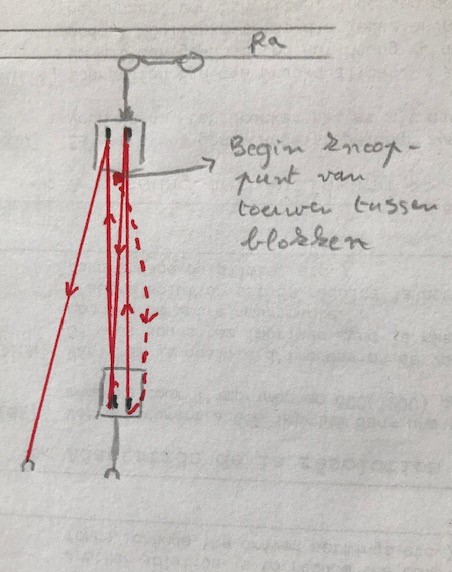 Ra
Begin knoop-
punt van
touwen tussen
blokken